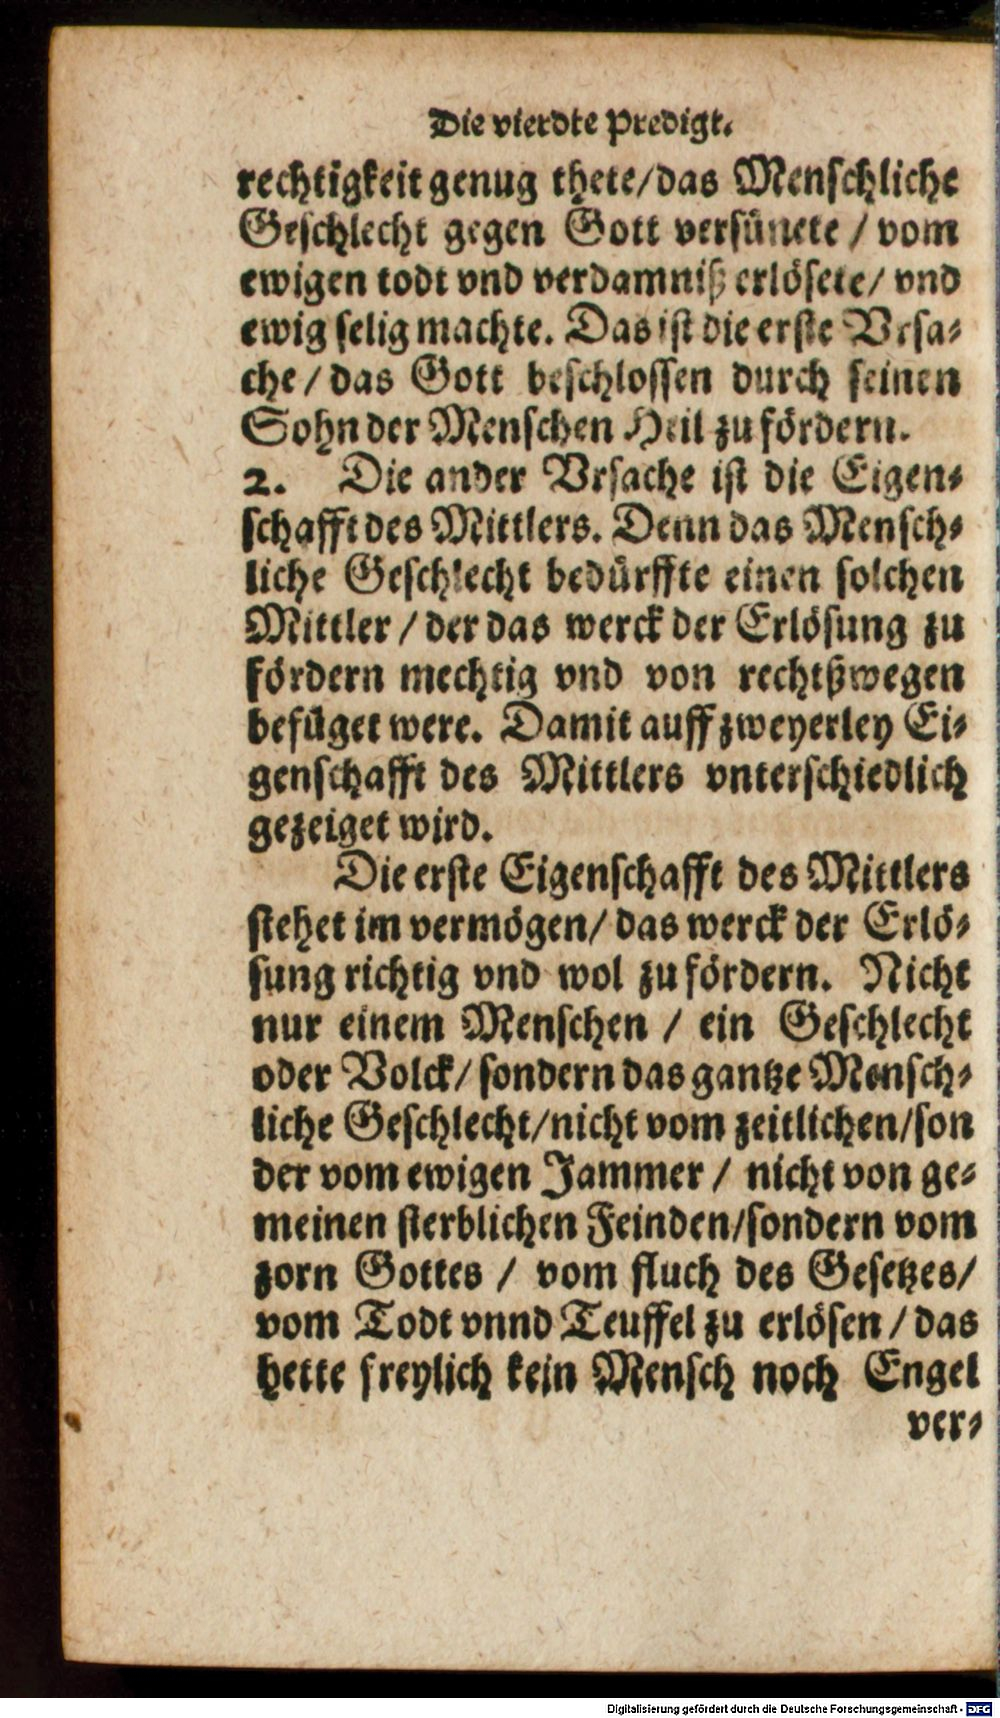 Die vierdte Predigt.
rechtigkeit genug thete/das Menschliche
Geschlecht gegen Gott versünete / vom
ewigen todt vnd verdamniß erlösete/ vnd
ewig selig machte. Das ist die erste Vrsa-
che / das Gott beschlossen durch seinen
Sohn der Menschen Heil zu fördern.
2. Die ander Vrsache ist die Eigen-
schafft des Mittlers. Denn das Mensch-
liche Geschlecht bedürffte einen solchen
Mittler / der das werck der Erlösung zu
fördern mechtig vnd von rechtßwegen
befüget were. Damit auff zweyerley Ei-
genschafft des Mittlers vnterschiedlich
gezeiget wird.
Die erste Eigenschafft des Mittlers
stehet im vermögen/ das werck der Erlö-
sung richtig vnd wol zu fördern. Nicht
nur einem Menschen / ein Geschlecht
oder Volck/ sondern das gantze Mensch-
liche Geschlecht/nicht vom zeitlichen/son
der vom ewigen Jammer / nicht von ge-
meinen sterblichen Feinden/sondern vom
zorn Gottes / vom fluch des Gesetzes/
vom Todt vnnd Teuffel zu erlösen / das
hette freylich kein Mensch noch Engel
ver-
Digitalisierung gefördert durch die Deutsche Forschungsgemeinschaft - DFG